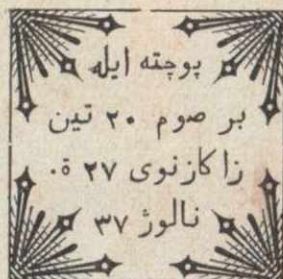 پوچته ایله
بر صوم ۲۰ تین
زاکازنوی ۲۷ ة.
نالوژ ۳۷